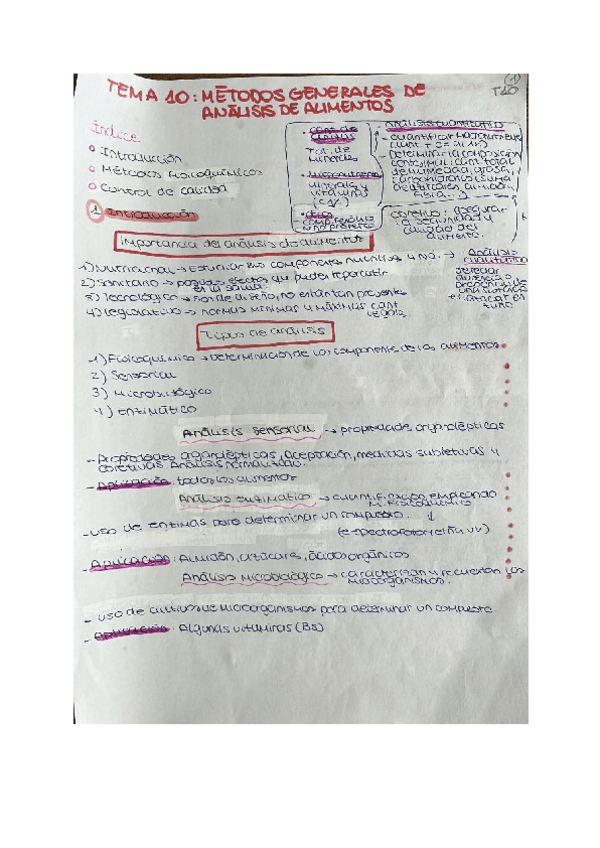 TEMA 10: MÉTODOS GENERALES DE
ANÁLISIS DE ALIMENTOS
1
T10
Índice
Introducción
Métodos fisicoquímicos
Control de calidad
cont. de
Tot. de
minerales
Micronutrientes
minerales y
vitaminas
Análisis cuantitativo
- cuantificar macronutrientes
- Determinar la composición
centesimal: cont. total
de humedad, grasa,
carbohidratos (suma
de azúcares, almidón,
fibra...)
objetivo: asegurar
la seguridad y
calidad del
alimento.
1 Introducción
Importancia del análisis de alimentos
1) Nutricional → Estudiar sus componentes nutritivos y no.
→ Análisis
cualitativo
detectar
ausencia o
presencia de
una sustancia
2) Sanitario → posibles efectos que pueden repercutir
en la salud
3) Tecnológico →
4) Legislativo → normas mínimas y máximas cant
legales
Tipos de análisis
1) Fisicoquímico → Determinación de los componentes de los alimentos
2) Sensorial
3) Microbiológico
4) Enzimático
Análisis sensorial → propiedades organolépticas
- Propiedades organolépticas, aceptación, medidas subjetivas y
objetivas. Análisis normalizado.
- Aplicación: todos los alimentos
Análisis enzimático → cuantificación empleando
m. fisicoquímico
- Uso de enzimas para determinar un compuesto. ↓
(espectrofotometría UV)
- Aplicación: Almidón, azúcares, ácidos orgánicos
Análisis microbiológico → caracterizan y recuentan los
microorganismos.
- Uso de cultivos de microorganismos para determinar un compuesto
- Aplicación: Algunas vitaminas (B5)